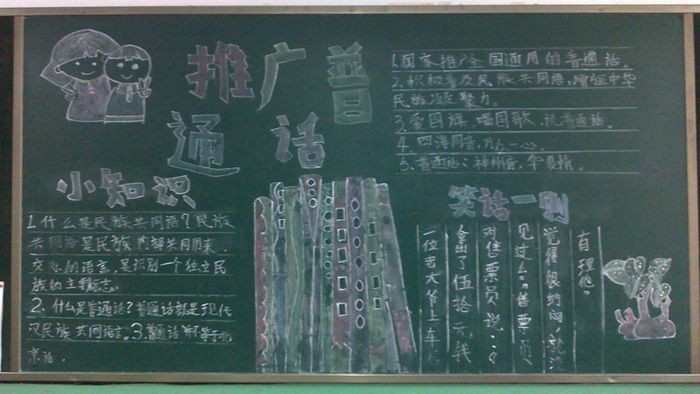 推广普
通话
1.国家推广全国通用的普通话。
2.积极普及民族共同语，增强中华
民族凝聚力。
3.爱国旗，唱国歌，说普通话。
4.四海同音，万众一心。
5.普通话：神州音，华夏情。
小知识
1.什么是民族共同语？民族
共同语是民族内部共同用来
交际的语言，是识别一个独立民
族的主要标志。
2.什么是普通话？普通话就是现代
汉民族共同语言。3.普通话不等于北
京话。
笑话一则
一位老大爷上车
拿出了伍拾元钱
对售票员说：
见过么。售票员
觉得很
有理他。